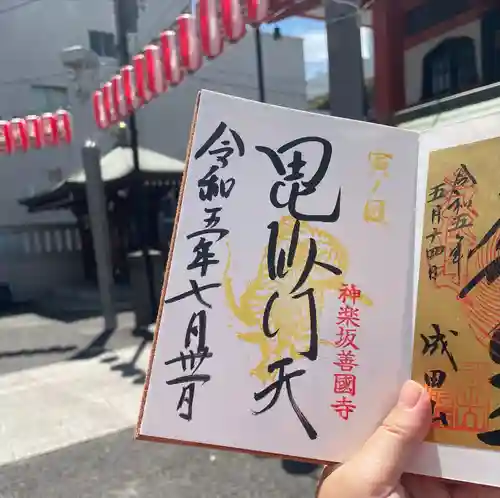 寅ノ日
毘沙門天
神楽坂善國寺
令和五年七月卅一日
令和五年
五月十四日
成田山